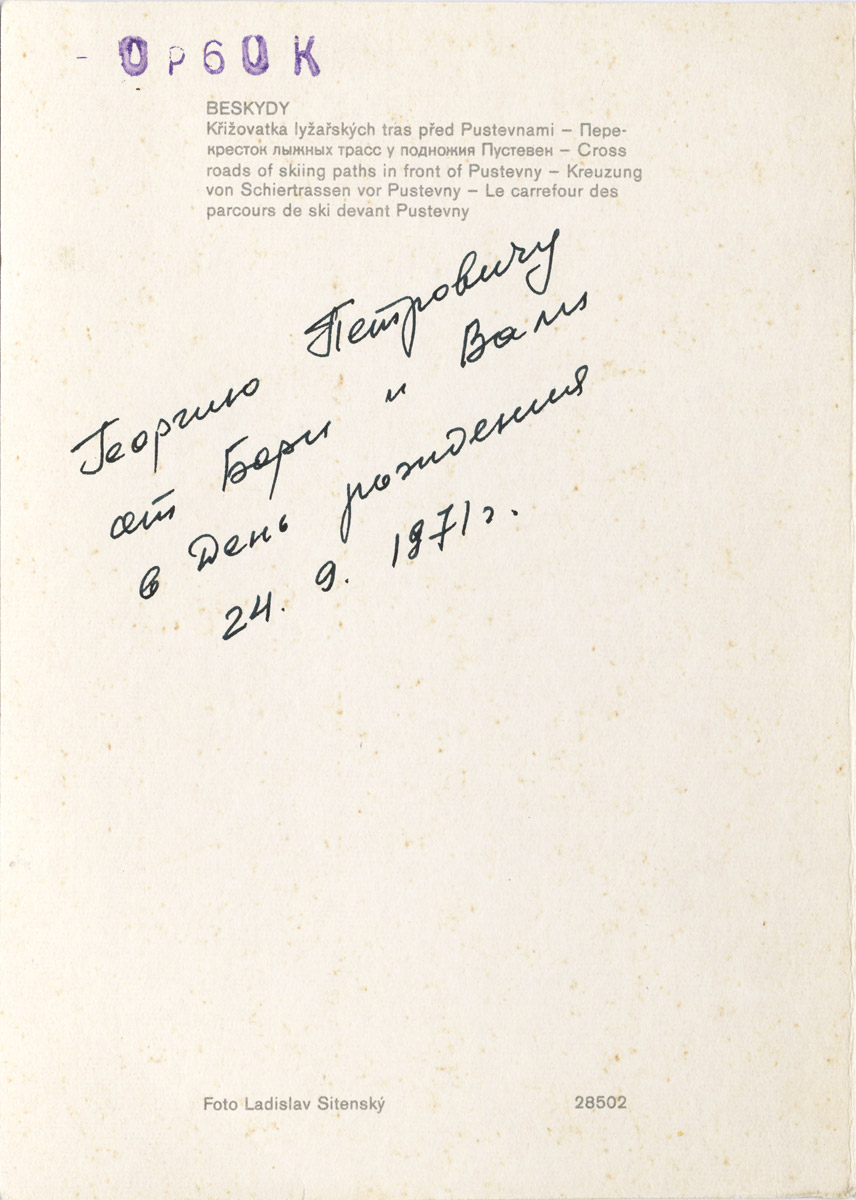 - 0р60К
BESKYDY
Křižovatka lyžařských tras před Pustevnami – Пере-
кресток лыжных трасс у подножия Пустевен – Cross
roads of skiing paths in front of Pustevny – Kreuzung
von Schiertrassen vor Pustevny – Le carrefour des
parcours de ski devant Pustevny
Георгию Петровичу
от Бори и Вали
в День рождения
24. 9. 1971г.
Foto Ladislav Sitenský 28502